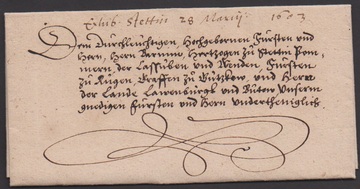 Exhib. Stettin 28 Martij. 1603
Dem Durchleuchtigen, Hochgebornen Fürsten und
Hern, Hern Barnimo, Hertzogen zu Stettin Pom=
mern, der Cassuben und Wenden, Fürsten
zu Rügen, Graffen zu Gützkow, und Hern
der Lande Lawenburgk und Bütow, Unserm
gnedigen Fürsten und Hern underthenigklich